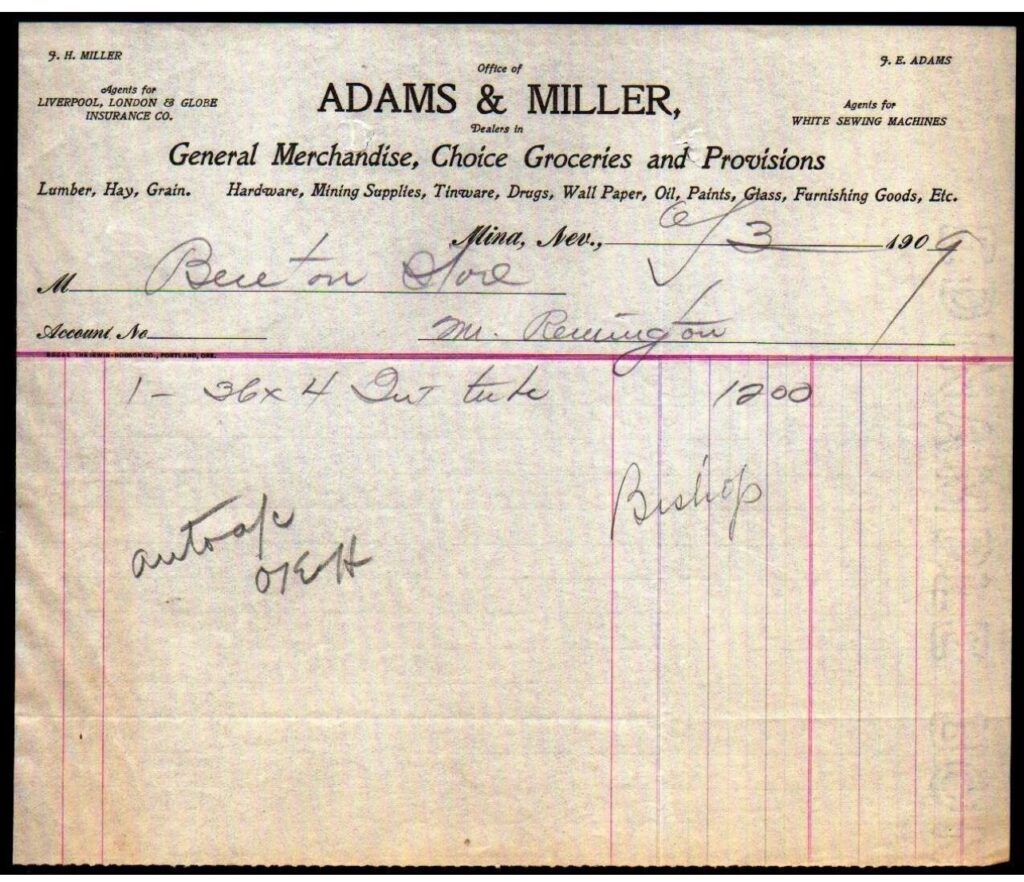 J. H. MILLER
J. E. ADAMS
Office of
Agents for
LIVERPOOL, LONDON & GLOBE
INSURANCE CO.
ADAMS & MILLER,
Agents for
WHITE SEWING MACHINES
Dealers in
General Merchandise, Choice Groceries and Provisions
Lumber, Hay, Grain. Hardware, Mining Supplies, Tinware, Drugs, Wall Paper, Oil, Paints, Glass, Furnishing Goods, Etc.
Mina, Nev., 6/3 1909
M Store
Account No M. Remington
1 - 36x4 tube 12 00
Bishop
auto